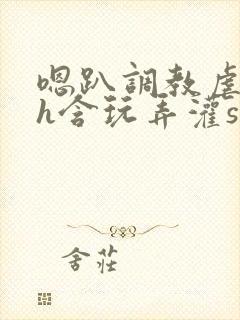 嗯趴調教虐
h含玩弄灌s
舍莊